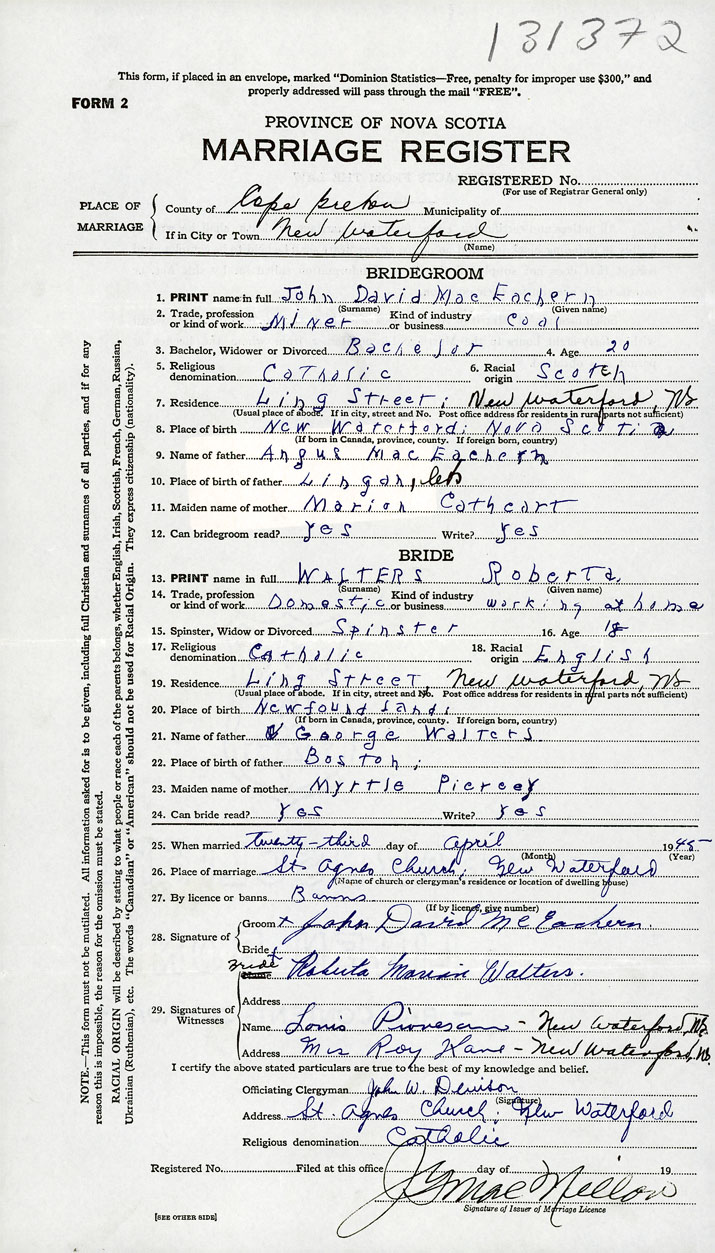 131372
This form, if placed in an envelope, marked "Dominion Statistics—Free, penalty for improper use $300," and
properly addressed will pass through the mail "FREE".
FORM 2
PROVINCE OF NOVA SCOTIA
MARRIAGE REGISTER
REGISTERED No.
(For use of Registrar General only)
PLACE OF MARRIAGE
County of Cape Breton Municipality of
If in City or Town New Waterford
(Name)
BRIDEGROOM
1. PRINT name in full John David Mac Eachern
(Surname) (Given name)
2. Trade, profession or kind of work Miner Kind of industry or business Coal
3. Bachelor, Widower or Divorced Bachelor 4. Age 20
5. Religious denomination Catholic 6. Racial origin Scotch
7. Residence Ling Street, New Waterford, NS
(Usual place of abode. If in city, street and No. Post office address for residents in rural parts not sufficient)
8. Place of birth New Waterford; Nova Scotia
(If born in Canada, province, county. If foreign born, country)
9. Name of father Angus Mac Eachern
10. Place of birth of father Lingan,
11. Maiden name of mother Marion Cathcart
12. Can bridegroom read? Yes Write? Yes
BRIDE
13. PRINT name in full WALTERS Roberta
(Surname) (Given name)
14. Trade, profession or kind of work Domestic Kind of industry or business working at home
15. Spinster, Widow or Divorced Spinster 16. Age 18
17. Religious denomination Catholic 18. Racial origin English
19. Residence Ling Street, New Waterford, NS
(Usual place of abode. If in city, street and No. Post office address for residents in rural parts not sufficient)
20. Place of birth Newfoundland,
(If born in Canada, province, county. If foreign born, country)
21. Name of father George Walters
22. Place of birth of father Boston;
23. Maiden name of mother Myrtle Piercey
24. Can bride read? Yes Write? Yes
25. When married twenty-third day of April 1945
(Month) (Year)
26. Place of marriage St Agnes Church, New Waterford
(Name of church or clergyman's residence or location of dwelling house)
27. By licence or banns Banns
(If by licence, give number)
28. Signature of
Groom x John David McEachern.
Bride
Bride Roberta Marian Walters.
Address
29. Signatures of Witnesses
Name Louis - New Waterford, NS.
Address Mrs Roy Kane - New Waterford, NS.
I certify the above stated particulars are true to the best of my knowledge and belief.
Officiating Clergyman John W. Denison
(Signature)
Address St. Agnes Church, New Waterford
Religious denomination Catholic
Registered No. Filed at this office day of 19
MacMillan
Signature of Issuer of Marriage Licence
[SEE OTHER SIDE]
NOTE.—This form must not be mutilated. All information asked for is to be given, including full Christian and surnames of all parties, and if for any
reason this is impossible, the reason for the omission must be stated.
RACIAL ORIGIN will be described by stating to what people or race each of the parents belongs, whether English, Irish, Scottish, French, German, Russian,
Ukrainian (Ruthenian), etc. The words "Canadian" or "American" should not be used for Racial Origin. They express citizenship (nationality).